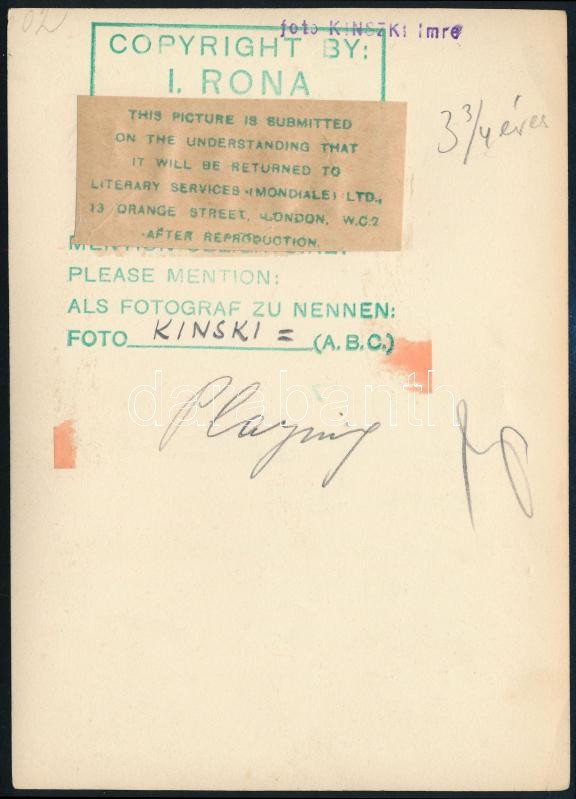 02
foto KINSZKI Imre
COPYRIGHT BY:
I. RONA
3 3/4 éves
THIS PICTURE IS SUBMITTED
ON THE UNDERSTANDING THAT
IT WILL BE RETURNED TO
LITERARY SERVICES (MONDIALE) LTD.,
13 ORANGE STREET, LONDON, W.C.2
AFTER REPRODUCTION.
MENTION
PLEASE MENTION:
ALS FOTOGRAF ZU NENNEN:
FOTO KINSKI = (A.B.C.)
darabanth
Playing